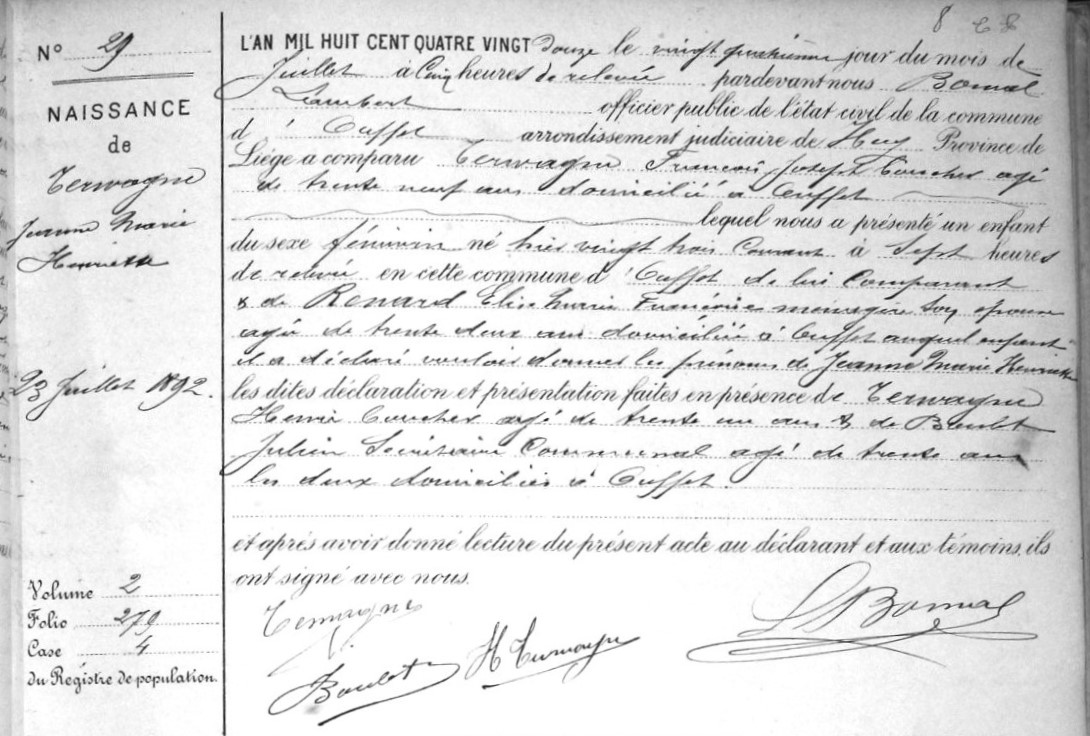 8
N° 29
NAISSANCE
de
Terwagne
Jeanne Marie
Henriette
23 Juillet 1892.
Volume 2
Folio 279
Case 4
du Régistre de population.
L'AN MIL HUIT CENT QUATRE VINGT douze le vingt quatrième jour du mois de
Juillet à Cinq heures de relevée pardevant nous Bomal
Lambert officier public de l'état civil de la commune
d'Ouffet arrondissement judiciaire de Huy Province de
Liége a comparu Terwagne François Joseph Boucher agé
de trente neuf ans domicilié à Ouffet
lequel nous a présenté un enfant
du sexe féminin né hier vingt trois Courant à Sept heures
de relevée en cette commune d'Ouffet de lui Comparant
& de Renard Elise Marie ménagère son épouse
agée de trente deux ans domiciliée à Ouffet auquel enfant
il a déclaré vouloir donner les prénoms de Jeanne Marie Henriette
les dites déclaration et présentation faites en présence de Terwagne
Henri Boucher agé de trente un ans & de Baulet
Julien Secrétaire Communal agé de trente ans
les deux domiciliés à Ouffet.
et aprés avoir donné lecture du présent acte au déclarant et aux témoins, ils
ont signé avec nous.
Terwagne
Baulet
H Terwagne
L Bomal